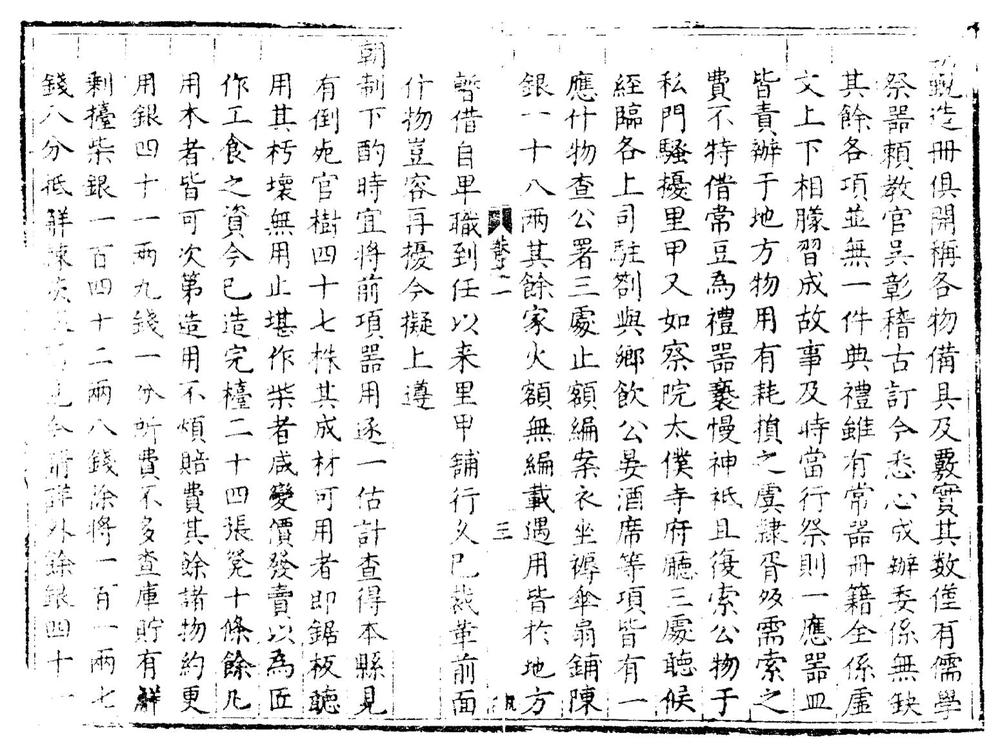 甄造冊俱開稱各物備具及覈實其数僅有儒學
祭器頼教官吳彰稽古訂今悉心成辦委係無缺
其餘各項並無一件典禮雖有常器冊籍全係虛
文上下相朦習成故事及時當行祭則一應器皿
皆責辦于地方物用有耗損之虞隷胥毎需索之
費不特借常豆為禮器䙝慢神袛且復索公物于
私門騷擾里甲又如察院太僕寺府廳三處聽候
經臨各上司駐劄與鄉飲公宴酒席等項皆有一
應什物查公署三處止額編案衣坐褥傘扇鋪陳
銀一十八兩其餘家火額無編載遇用皆於地方
卷二 三
暫借自卑職到任以来里甲鋪行久已裁革前面
什物豈容再擾今擬上遵
朝制下酌時宜將前項器用逐一估計查得本縣見
有倒死官樹四十七株其成材可用者即鋸板聽
用其朽壞無用止堪作柴者咸變價發賣以為匠
作工食之資今已造完檯二十四張凳十條餘凡
用木者皆可次第造用不煩賠費其餘諸物約更
用銀四十一兩九錢一分所費不多查庫貯有鮮
剩檯柴銀一百四十二兩八錢除將一百一兩七
錢八分抵鮮 詳外餘銀四十一